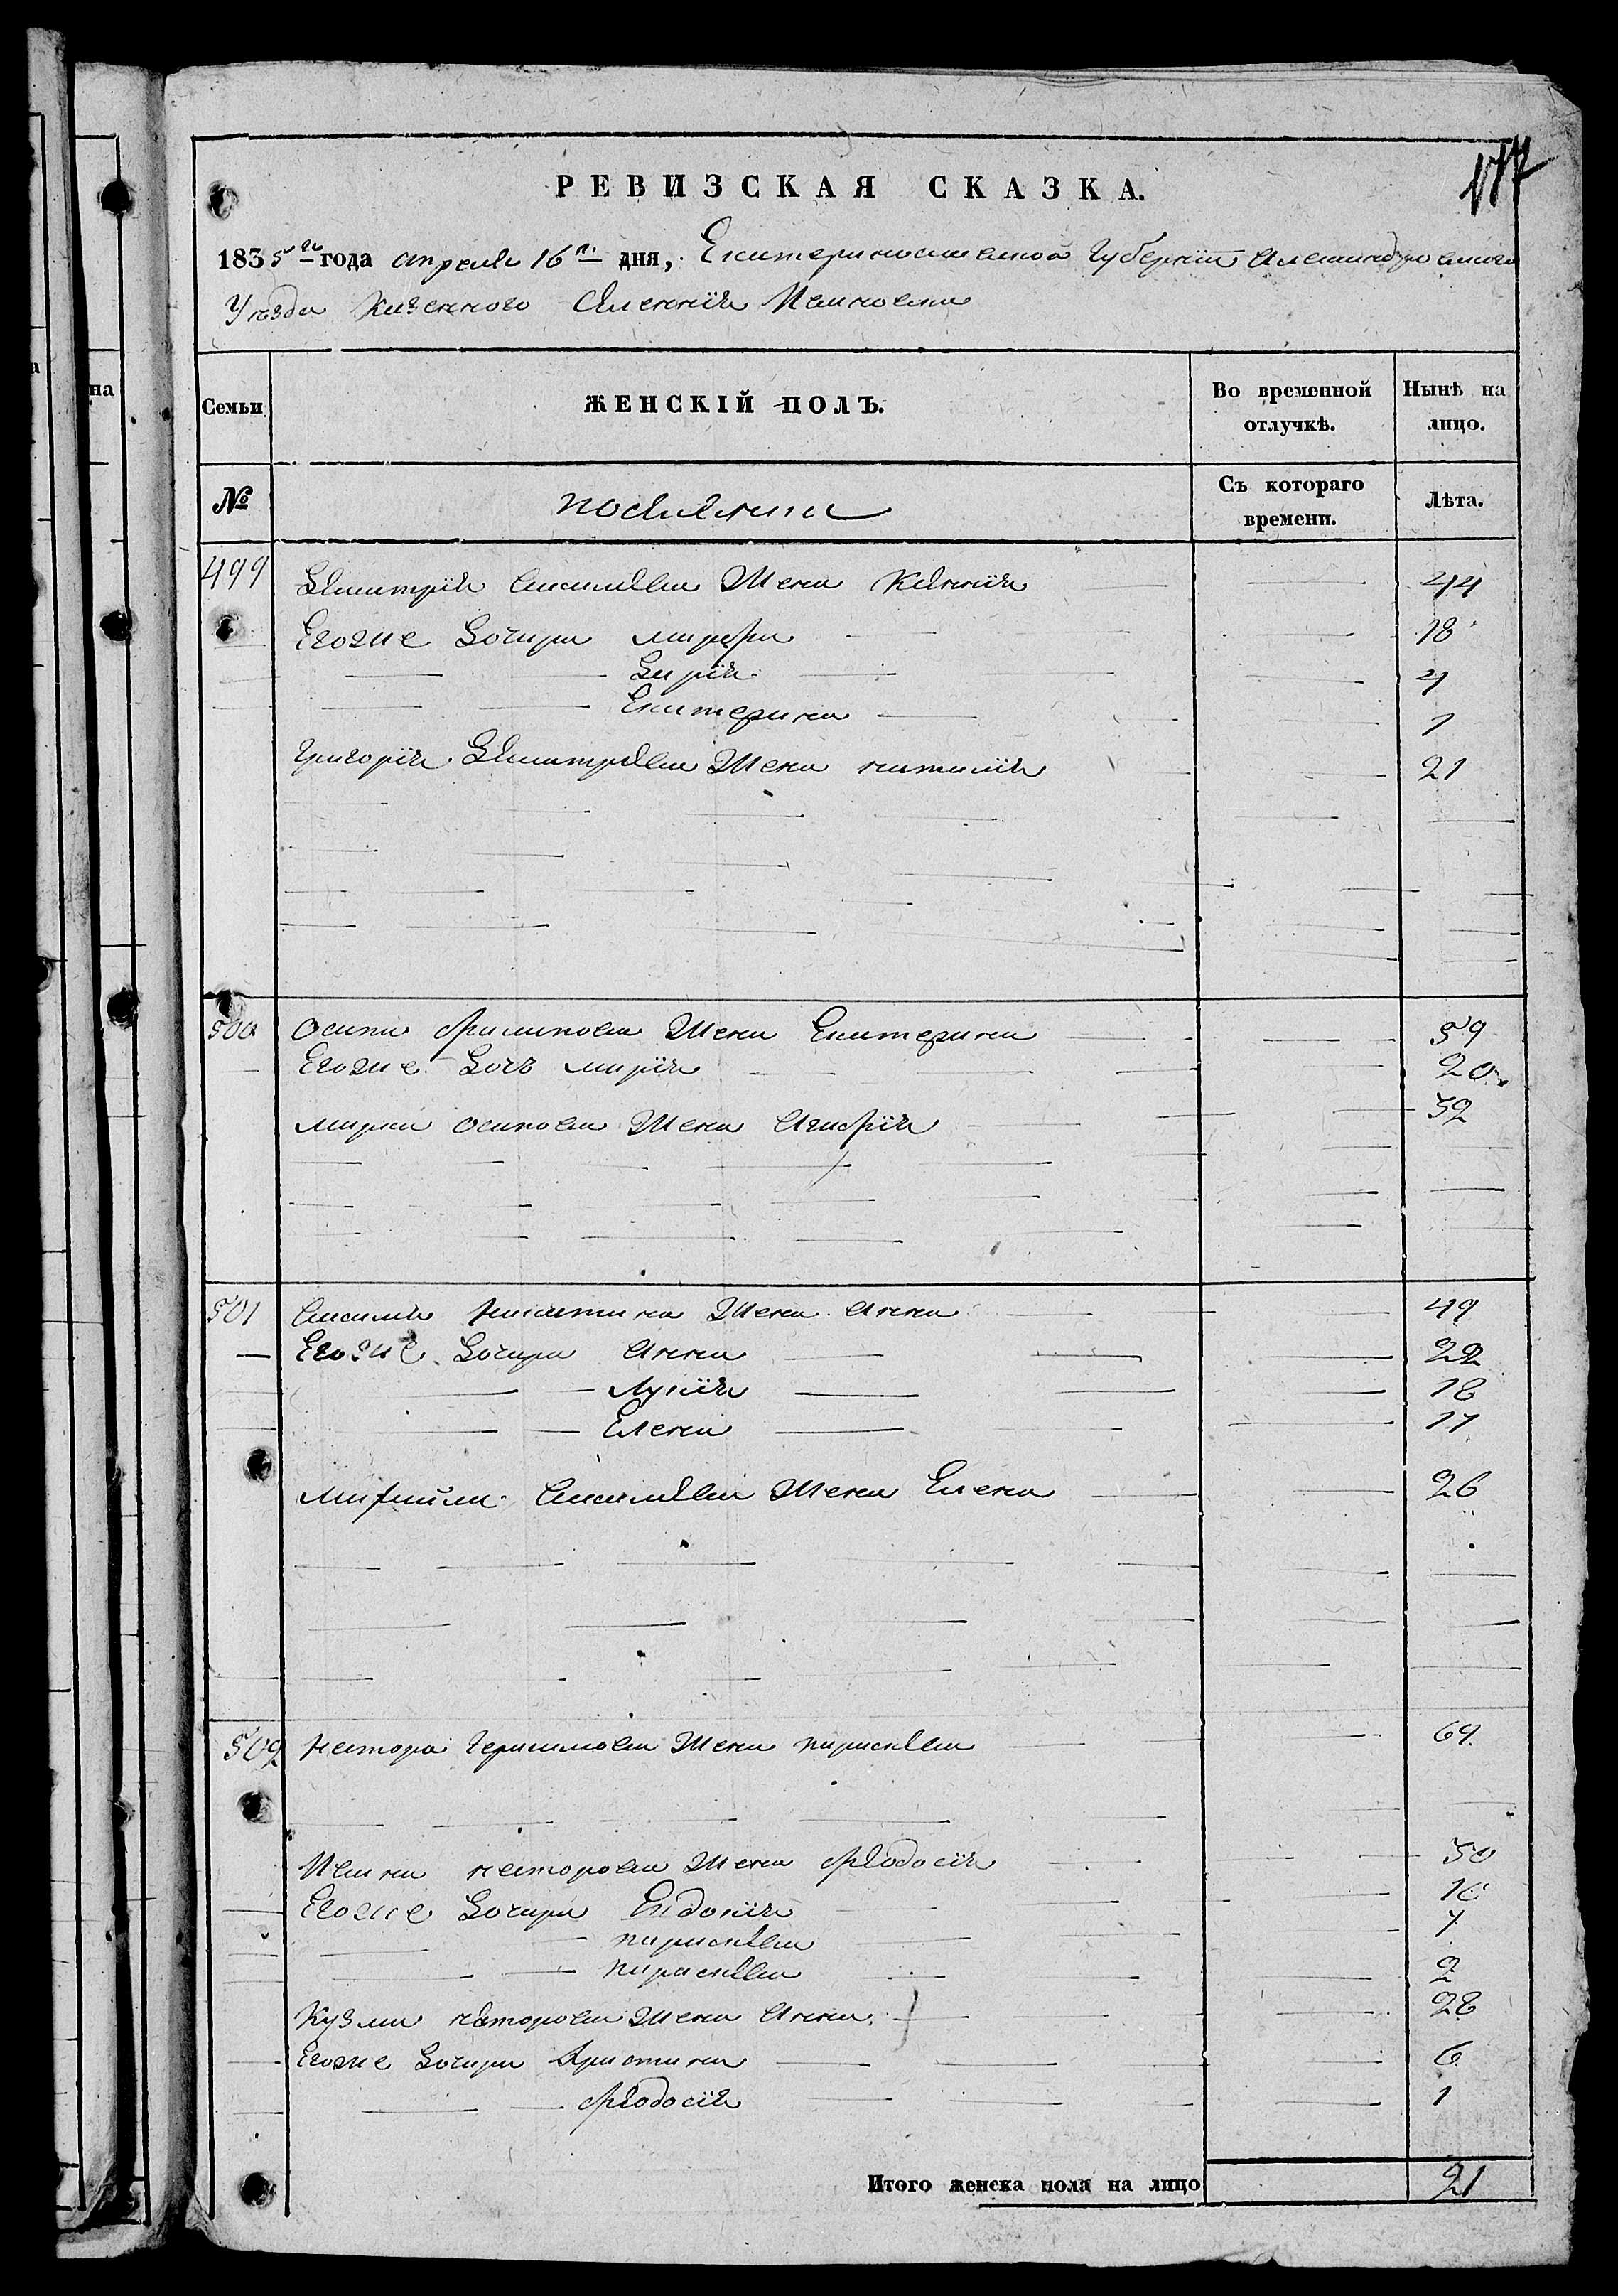 177
РЕВИЗСКАЯ СКАЗКА.
1835го года апреля 16го дня, Екатеринославской Губернии Александровского
Уезда Казенного Селения
Семьи
ЖЕНСКІЙ ПОЛЪ.
Во временной отлучкѣ.
Нынѣ на лицо.
№
поселяни
Съ котораго времени.
Лѣта.
499 Дмитрія Васильева жена Ксенія 44
Егоже дочери Марфа 18
Дарія 4
Екатерина 1
Григорія Дмитріева жена Наталія 21
500 Осипа Филипова жена Екатерина 59
Егоже дочь Марія 20
Марка Осипова жена Агафія 32
501 Василия Никитина жена Анна 49
Егоже дочери Анна 22
Лукія 18
Елена 17
Михайла Васильева жена Елена 26
502 Нестора Герасимова жена Параскева 69
Ивана Несторова жена Феодосія 50
Егоже дочери Евдокія 16
Параскева 7
Параскева 2
Кузмы Несторова жена Анна 28
Егоже дочери Христина 6
Феодосія 1
Итого женска пола на лицо 21